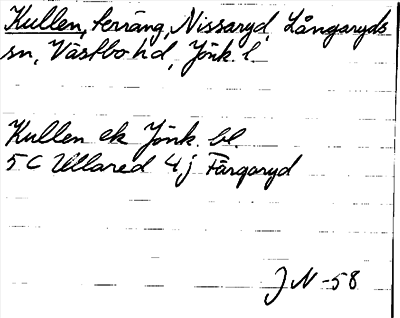 Kullen, terräng, Nissaryd, Långaryds
sn, Västbo hd, Jönk. l.
Kullen ek Jönk. bl.
5 C Ullared 4 j Färgaryd
J N -58